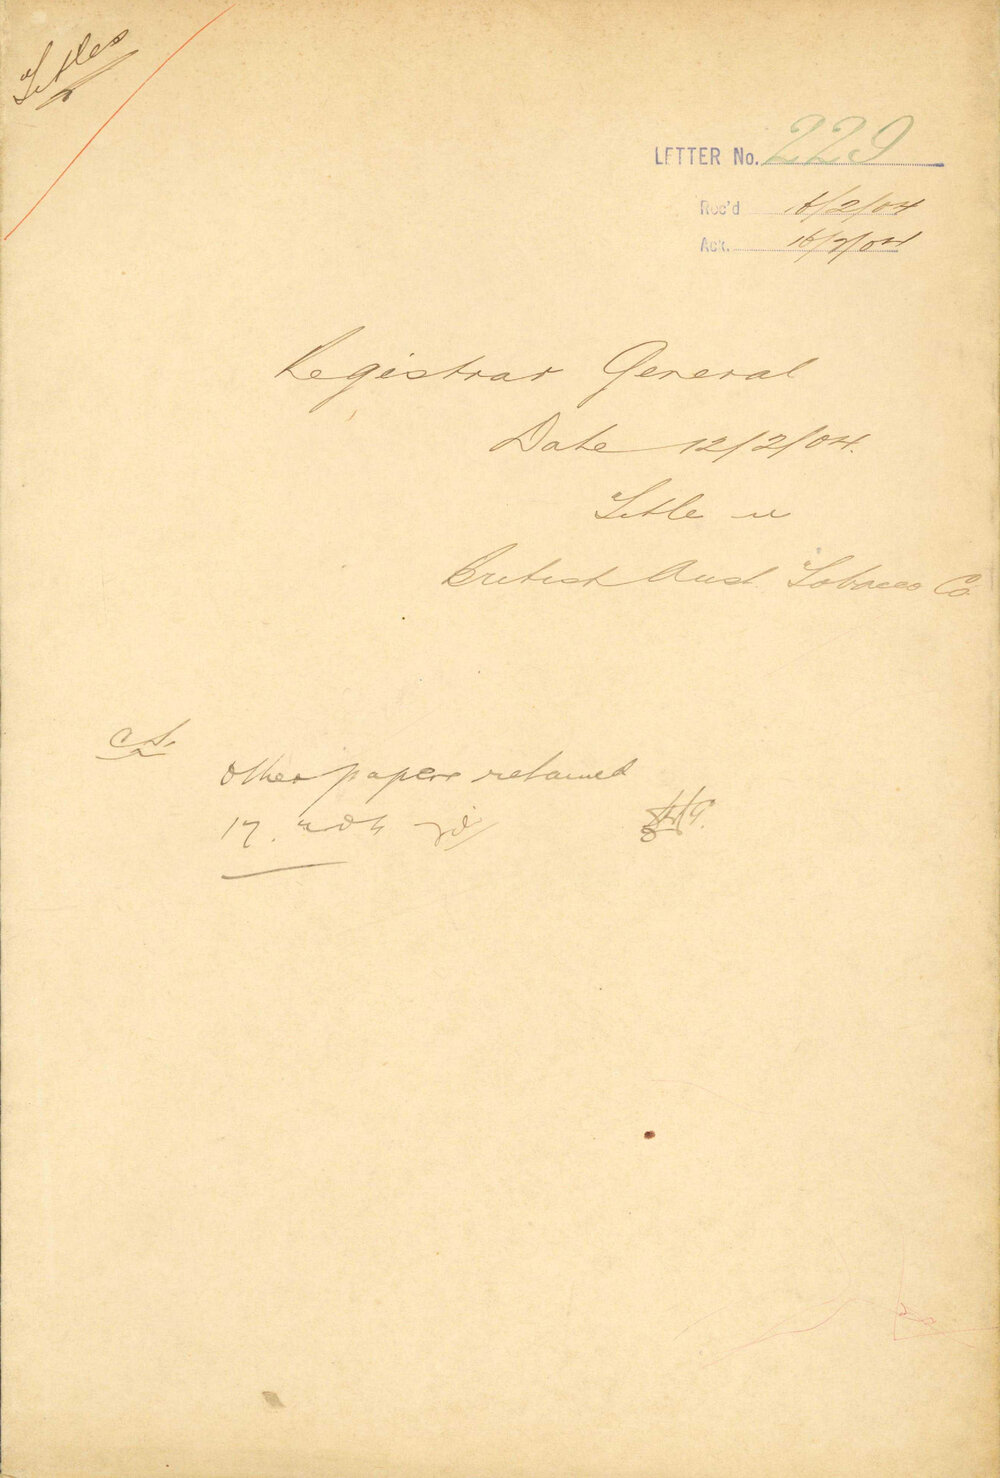 Titles
LETTER No. 229
Rec'd 16/2/04
Ack. 16/2/04
Registrar General
Date 12/2/04.
Title re
British Aust. Tobacco Co
Other papers retained
17.